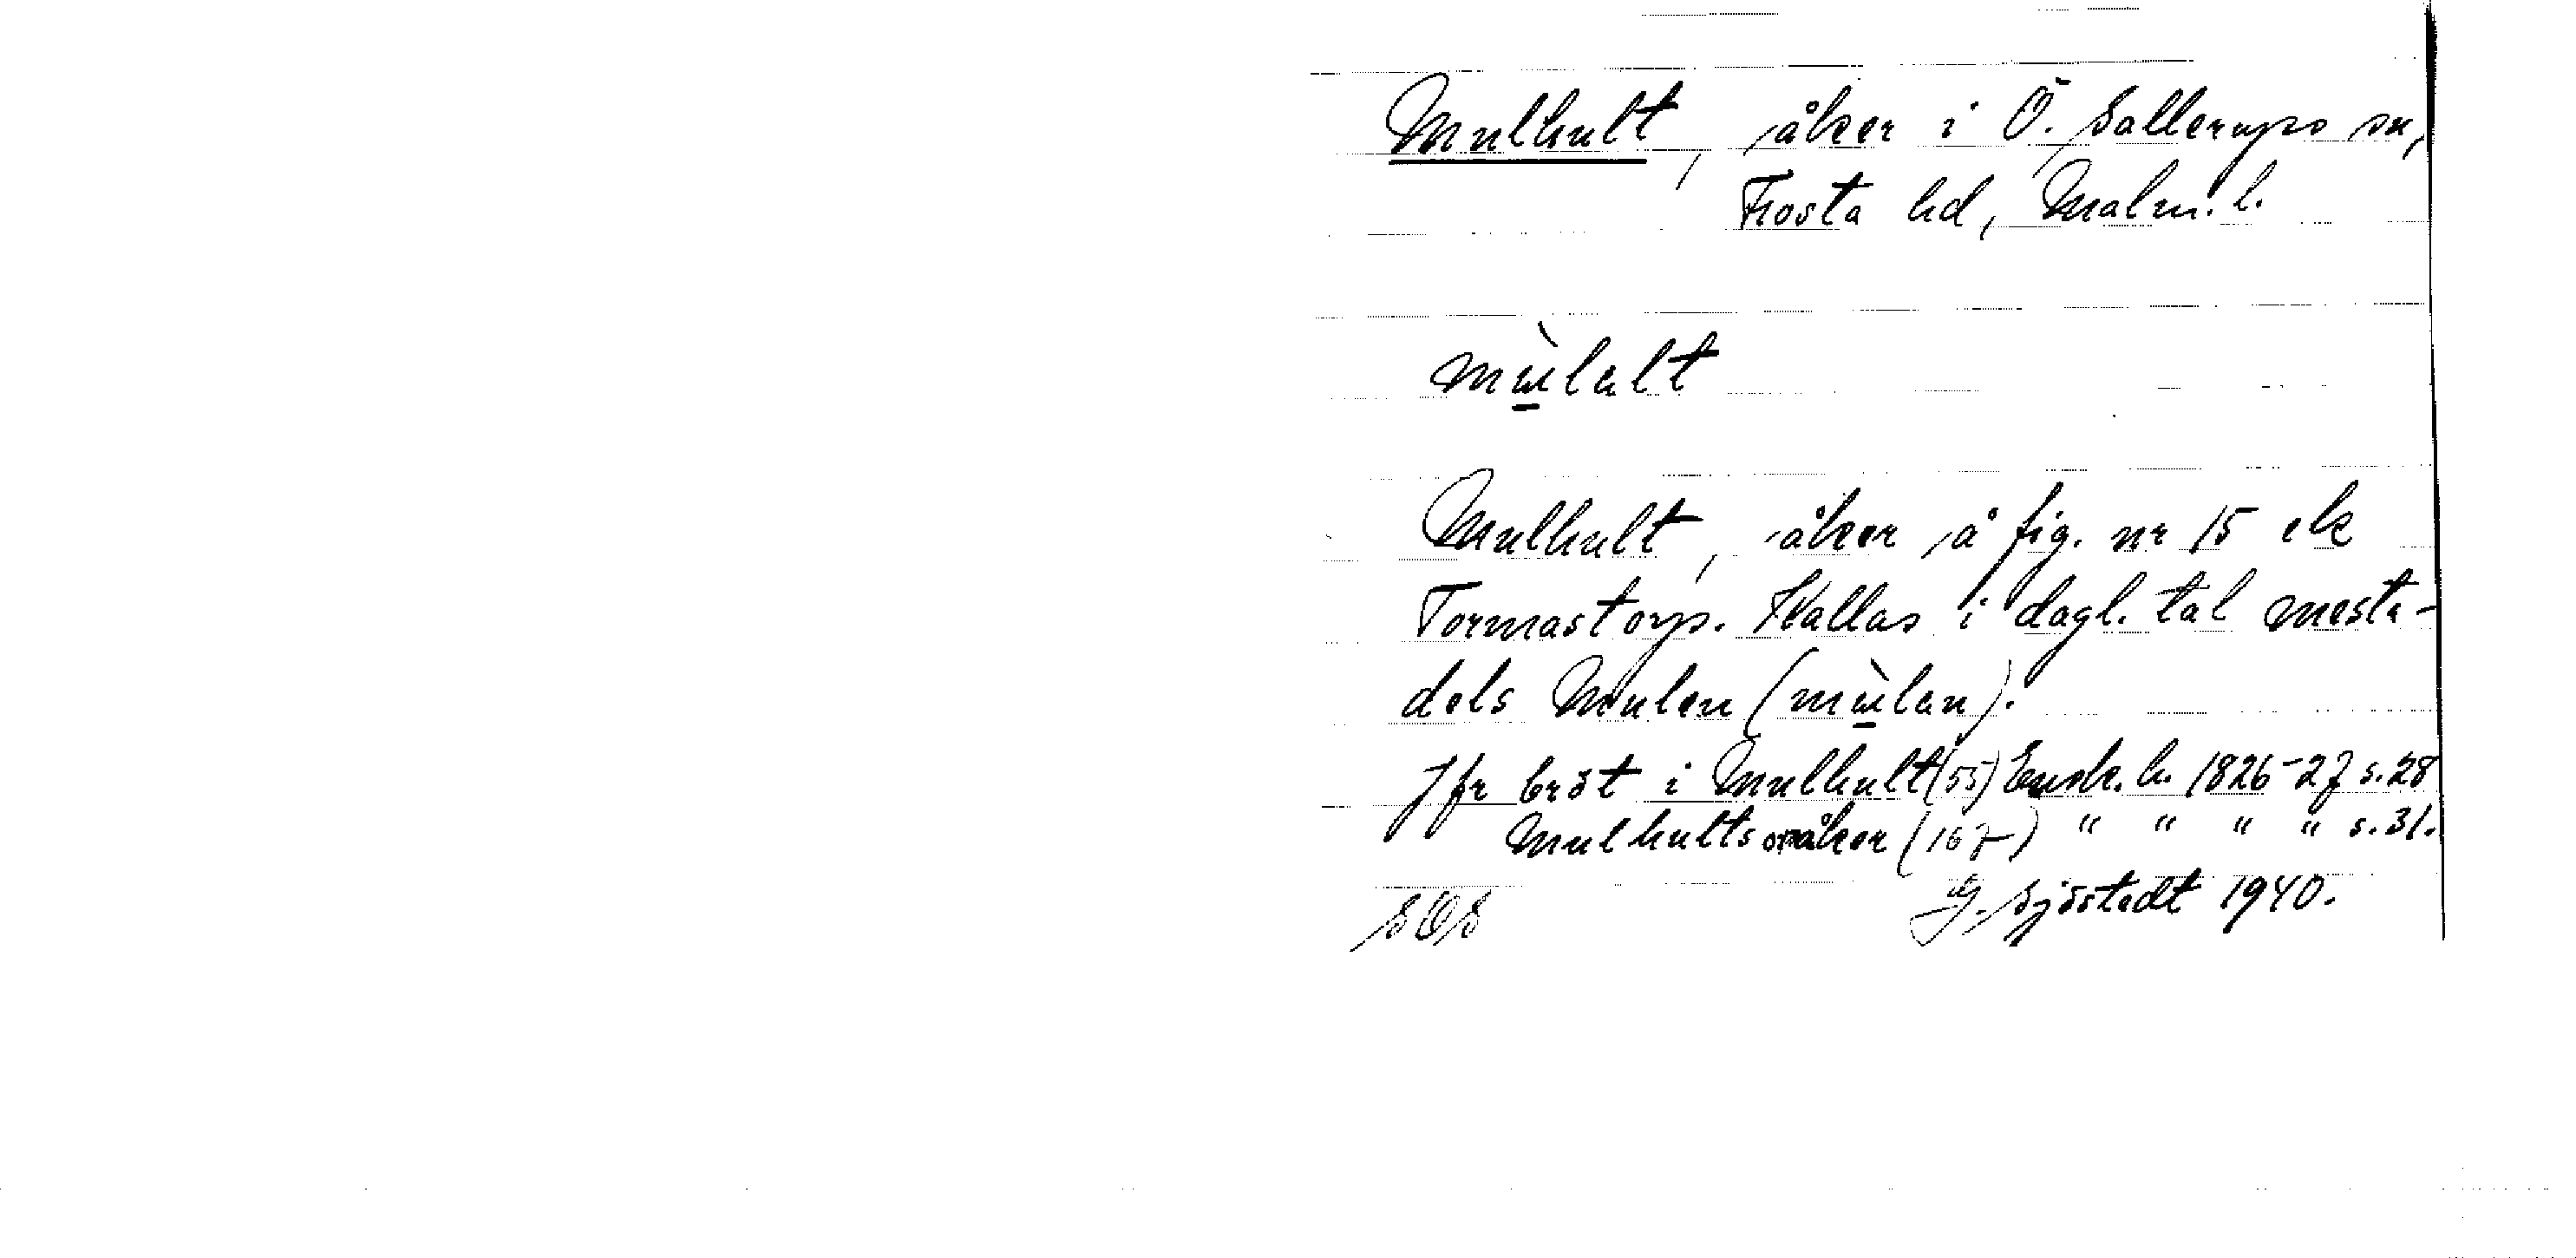 Mulhult, åker i Ö. Sallerups sn,
Frosta hd, Malm. l.
mùlelt
Mulhult, åker å fig. nr 15 ek
Tormastorp. Kallas i dagl. tal mesta-
dels Mulen (mùlen).
Jfr bröt i Mulhult (55) Ensk. h. 1826-27 s. 28
Mulhultsåker (167) " " " " s. 31.
SOS G. Sjöstedt 1940.